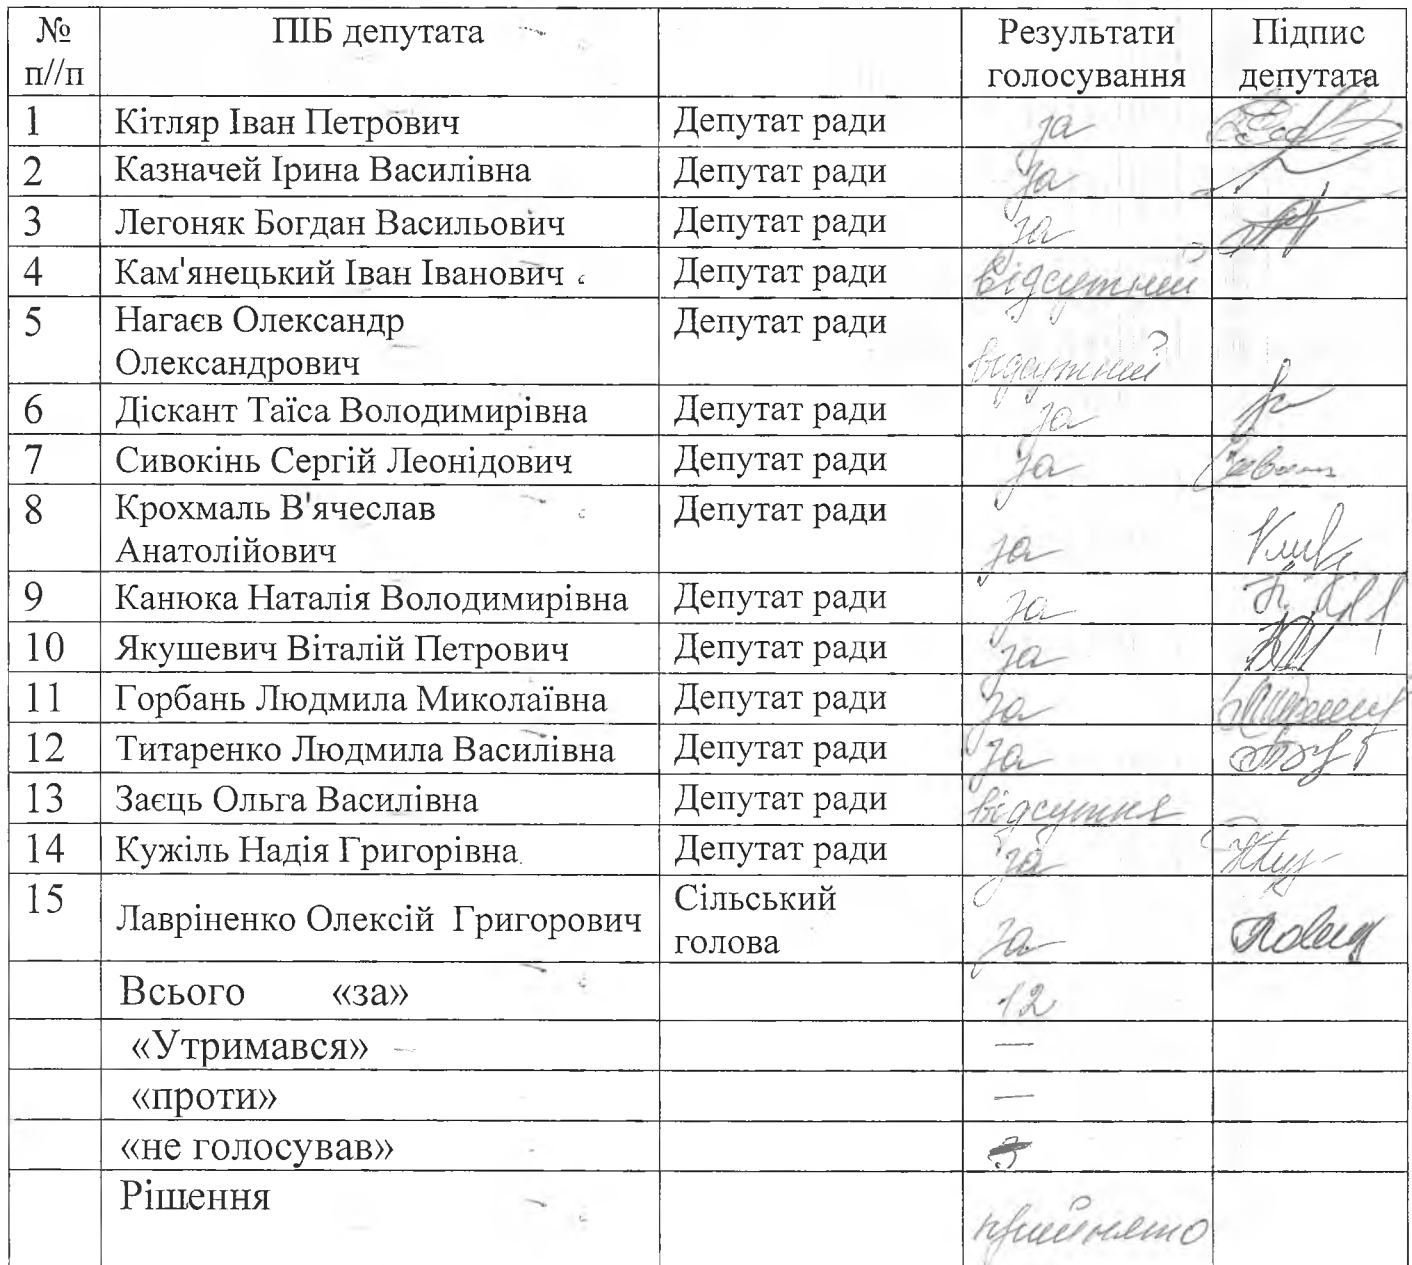 № п//п ПІБ депутата Результати голосування Підпис депутата
1 Кітляр Іван Петрович Депутат ради за
2 Казначей Ірина Василівна Депутат ради За
3 Легоняк Богдан Васильович Депутат ради за
4 Кам'янецький Іван Іванович Депутат ради відсутній
5 Нагаєв Олександр Олександрович Депутат ради відсутній
6 Діскант Таїса Володимирівна Депутат ради за
7 Сивокінь Сергій Леонідович Депутат ради за
8 Крохмаль В'ячеслав Анатолійович Депутат ради за
9 Канюка Наталія Володимирівна Депутат ради за
10 Якушевич Віталій Петрович Депутат ради за
11 Горбань Людмила Миколаївна Депутат ради За
12 Титаренко Людмила Василівна Депутат ради за
13 Заєць Ольга Василівна Депутат ради відсутня
14 Кужіль Надія Григорівна Депутат ради за
15 Лавріненко Олексій Григорович Сільський голова за
Всього «за» 12
«Утримався» —
«проти» —
«не голосував» 3
Рішення прийнято